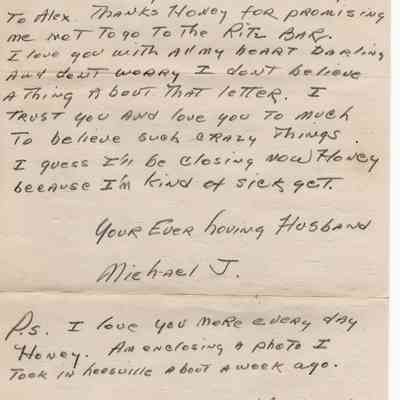 To Alex. Thanks Honey for promising
me not to go to the Ritz Bar.
I love you with all my heart Darling
And dont worry I dont believe
A thing About that letter. I
trust you And love you to much
To believe such crazy things.
I guess I'll be closing now Honey
because I'm kind of sick yet.
Your Ever Loving Husband
Michael J.
P.s. I love you more every day
Honey. Am enclosing A photo I
Took in Leesville About A week Ago.